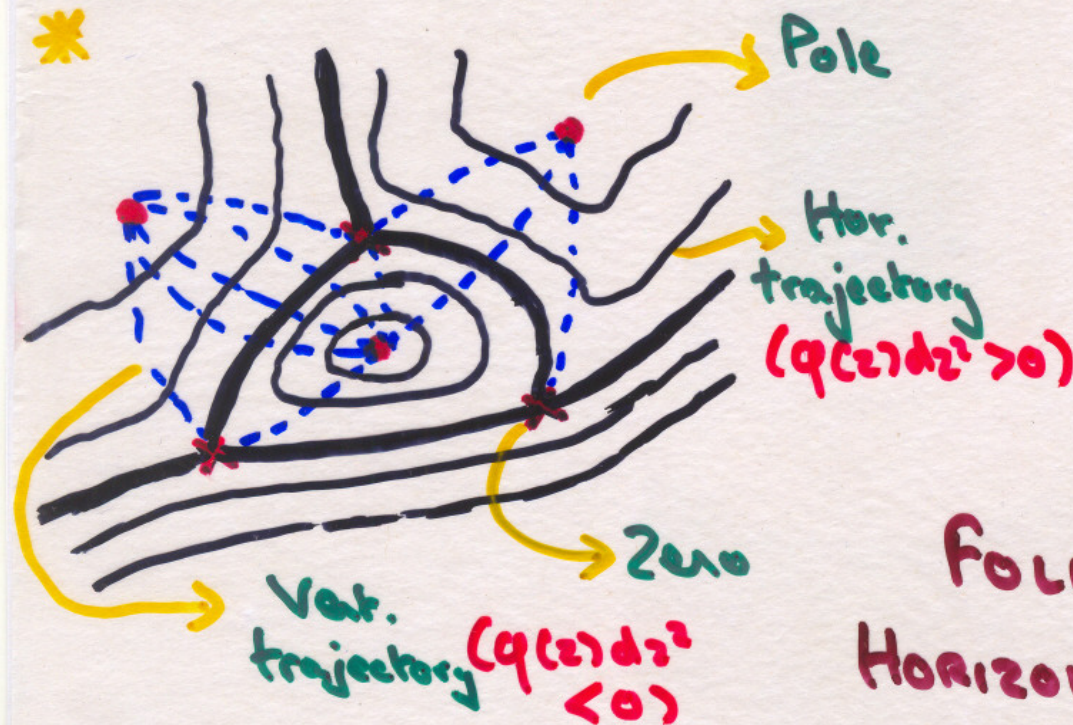 Pole
Hor.
trajectory
(q(z)dz²>0)
Zero
Vert.
trajectory (q(z)dz²
<0)
HORIZO